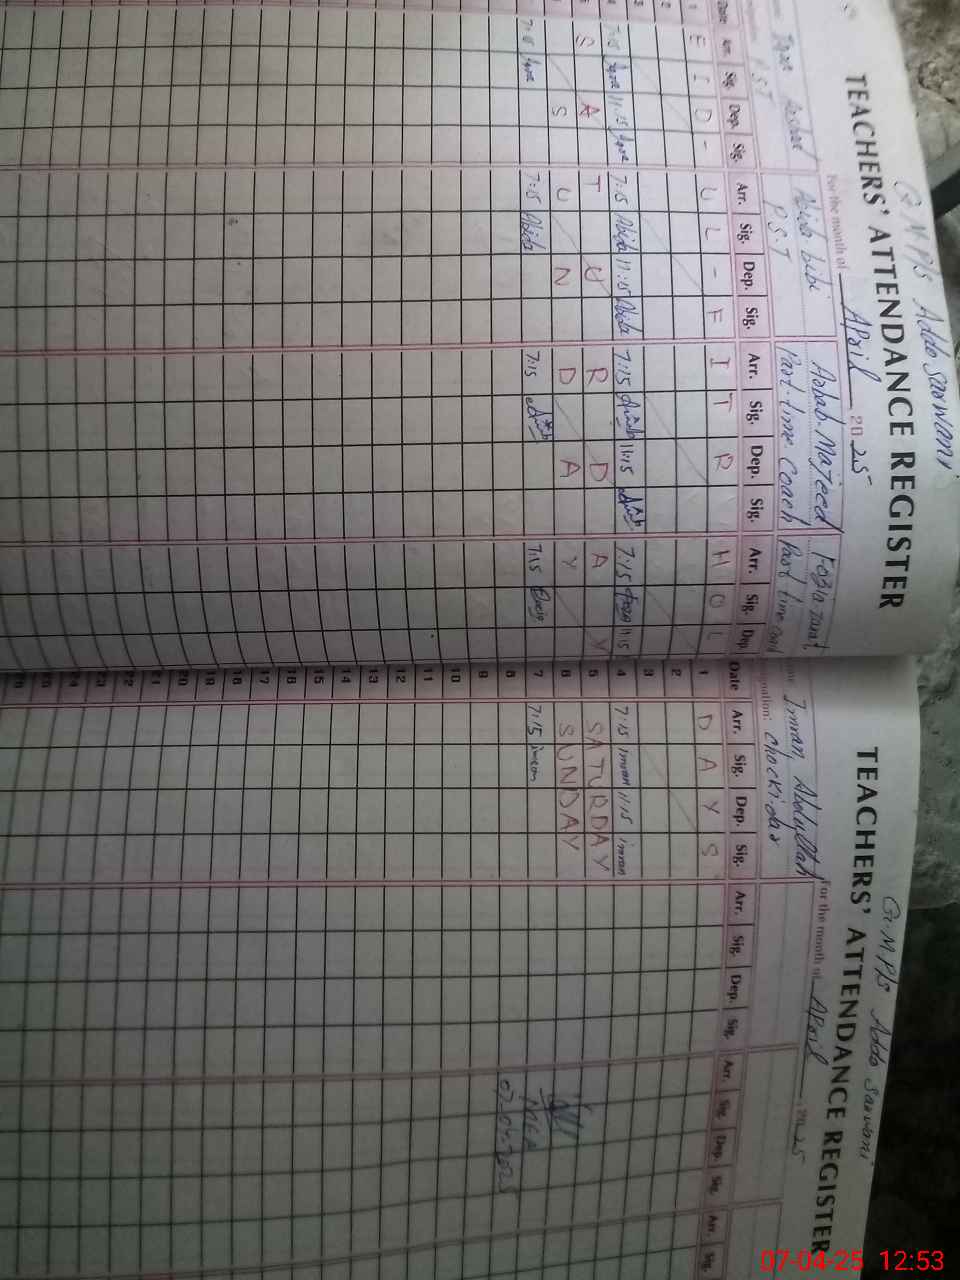 G.M.P/s Addo Sarwani
TEACHERS' ATTENDANCE REGISTER
For the month of April 2025
Abida bibi Arbab Majeed Fozia
P.S.T P.S.T Part time Coach Part time
Date Arr. Sig. Dep. Sig. Arr. Sig. Dep. Sig. Arr. Sig. Dep. Sig. Arr. Sig. Dep.
1 E I D - U L - F I T R H O L
2
3
4 7:15 11:15 7:15 Abida 11:15 Abida 7:15 11:15 7:15 11:15
5 S A T U R D A Y
6 S U N D A Y
7:15 7:15 Abida 7:15 7:15
G.M.P/s Addo Sarwani
TEACHERS' ATTENDANCE REGISTER
For the month of April, 2025
Imran Abdullah
Designation: Chockidar
Date Arr. Sig. Dep. Sig. Arr. Sig. Dep. Sig. Arr. Sig. Dep. Sig. Arr. Sig.
1 D A Y S
2
3
4 7:15 imran 11:15 imran
5 SATURDAY
6 SUNDAY
7 7:15 imran
MEA
8 07.04.2025
9
10
11
12
13
14
15
16
17
18
19
20
21
22
23
24
25
26
07-04-25 12:53